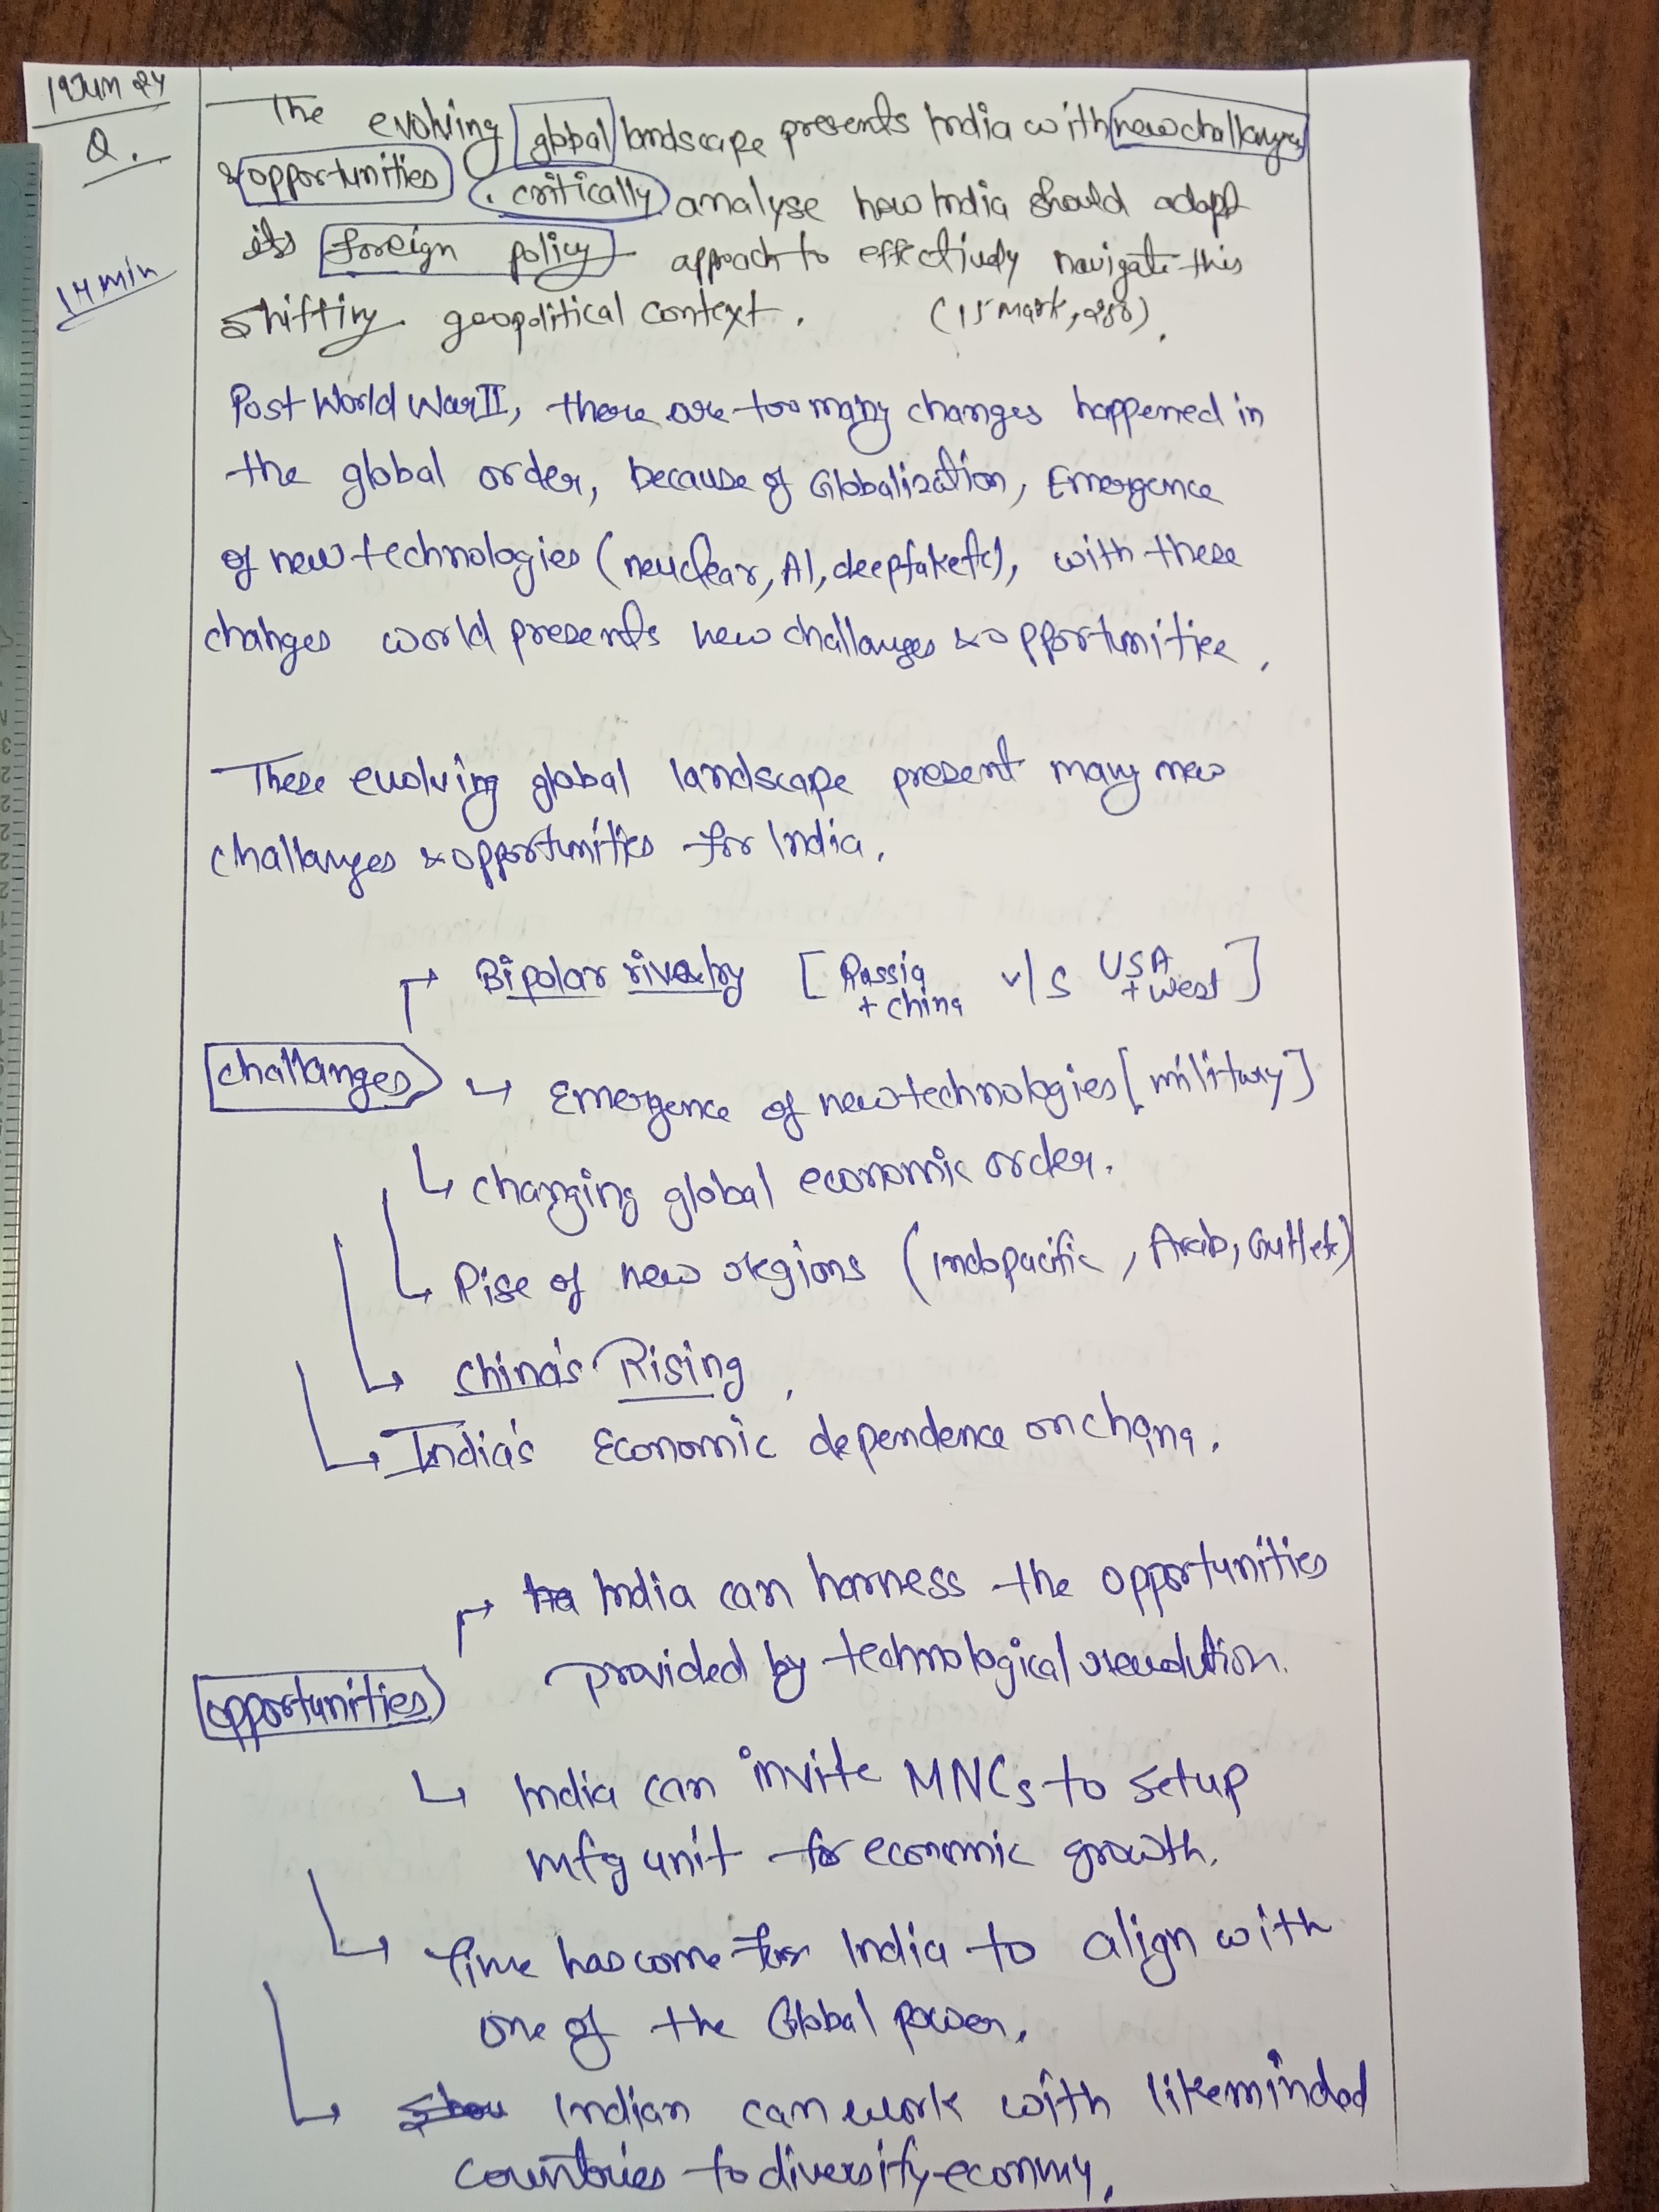 19 Jun 24
Q.
The evolving global landscape presents India with new challanges
& opportunities. critically analyse how India should adapt
its foreign policy approach to effectively navigate this
14 min
Shifting geopolitical context. (15 mark, 250).
Post World War II, there are too many changes happened in
the global order, because of Globalization, Emergence
of new technologies (neuclear, AI, deepfake etc), with these
changes world presents new challanges & opportunities.
These evolving global landscape present many new
challanges & opportunities for India.
Bipolar rivalry [Russia + China v/s USA + West]
challanges
Emergence of new technologies [military]
changing global economic order.
Rise of new regions (Indopacific, Arab, Gulf etc)
China's Rising,
India's Economic dependence on china.
India can harness the opportunities
provided by technological revolution.
opportunities
India can invite MNCs to setup
mfg unit for economic growth.
Time has come for India to align with
one of the Global power.
Indian can work with likeminded
countries to diversify economy.